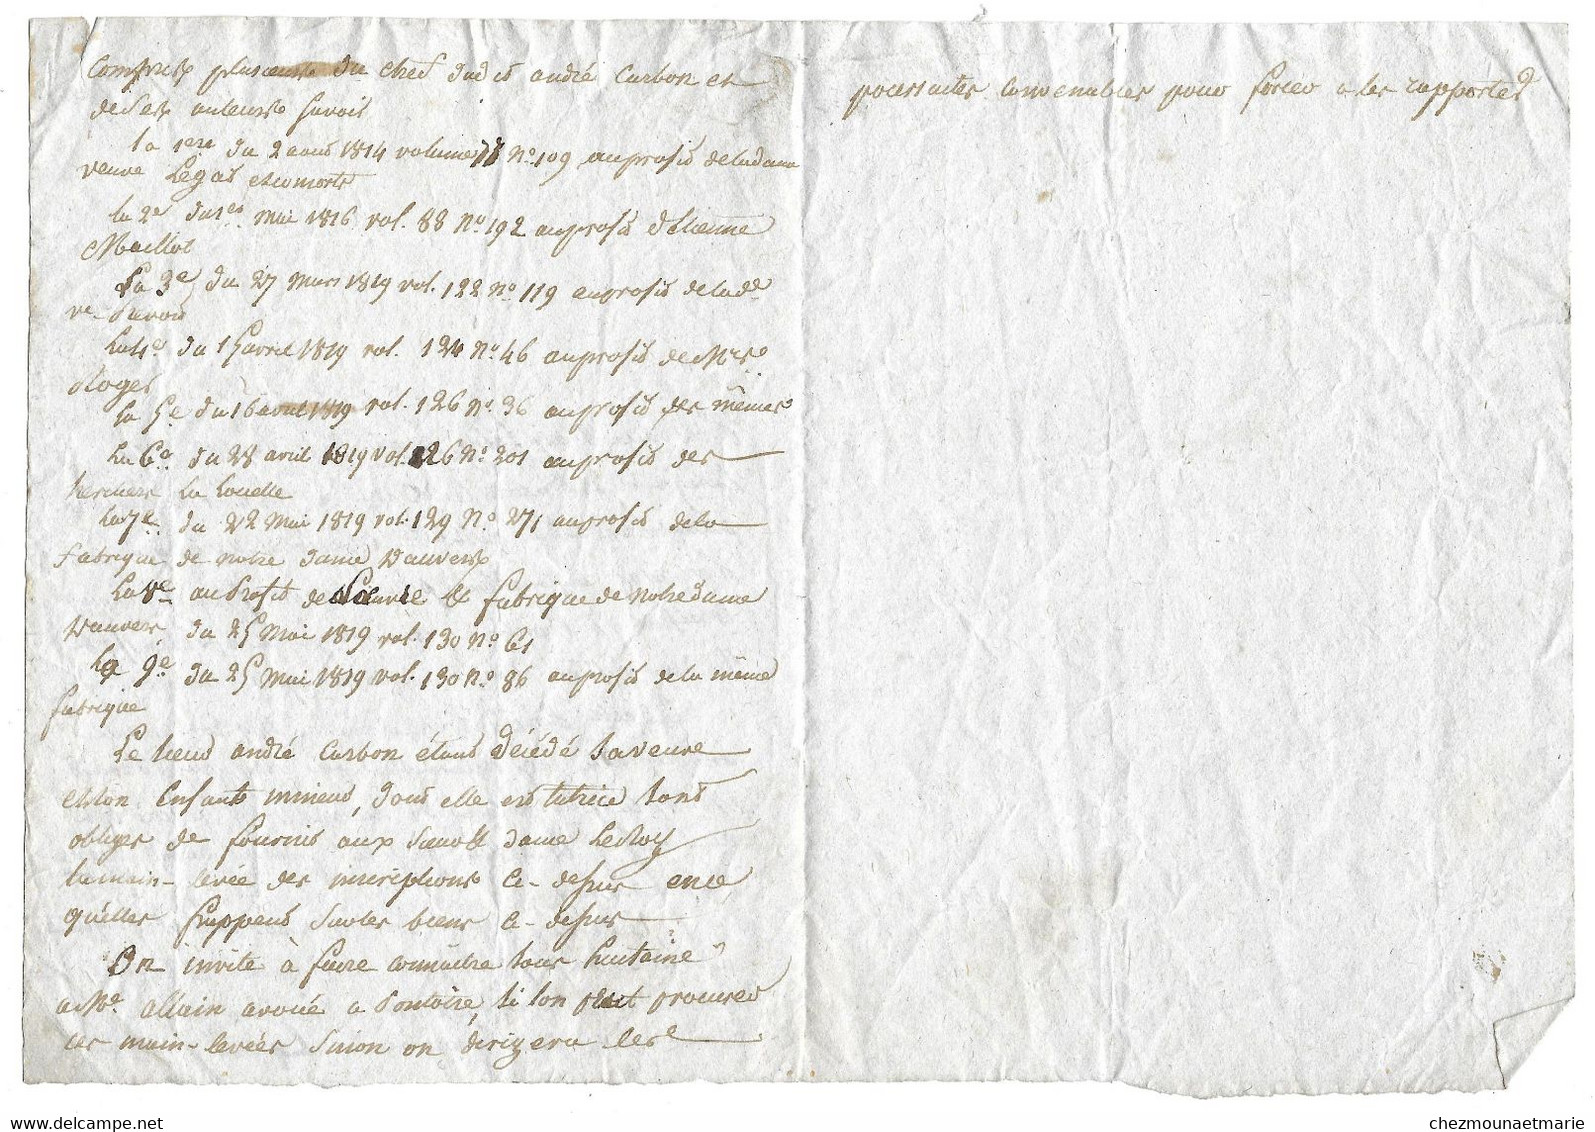 compris plusieurs du chef dudit andré Carbon et
de ses auteurs savoir
la 1ere du 2 aout 1814 volume 78 no. 109 au profit de la dame
veuve Legat
la 2e du 1er mai 1816 vol. 88 No. 192 au profit d'Etienne
Maillot
La 3e du 27 Mars 1819 vol. 122 No. 119 au profit de la de
ve
La 4e du 15 avril 1819 vol. 124 No. 46 au profit de
Roger
La 5e du 16 avril 1819 vol. 126 No. 36 au profit des mêmes
La 6e du 28 avril 1819 vol. 126 No. 201 au profit des
heritiers La Louette
La 7e du 22 Mai 1819 vol. 129 No. 271 au profit de la
fabrique de notre dame d'auvers
La 8e au Profit de fabrique de Notre dame
d'auvers du 25 Mai 1819 vol. 130 No. 61
La 9e du 25 Mai 1819 vol. 130 No. 86 au profit de la même
fabrique
Le sieur andré Carbon étant décédé sa veuve
et son Enfant mineur, dont elle est tutrice sont
obligés de fournir aux sieur et dame LeRoy
la main-levée des inscriptions ci-dessus en ce
qu'elles frappent sur les biens ci-dessus
On invite à faire connaître sous huitaine
a Me. allain avoué a Pontoise, si lon peut procurer
ces main-levées sinon on dirigera les
poursuites convenables pour forcer a les rapporter
chezmounaetmarie
www.delcampe.net